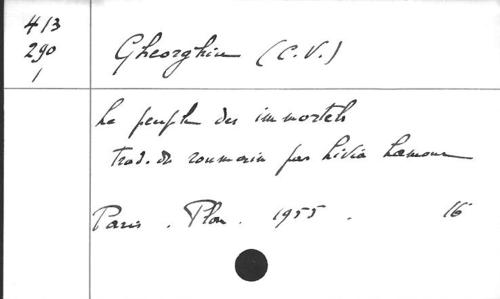 413
290
1
Gheorghiu (C.V.)
Le peuple des immortels
trad. du roumain par Livia Lamoure
Paris. Plon. 1955. 16